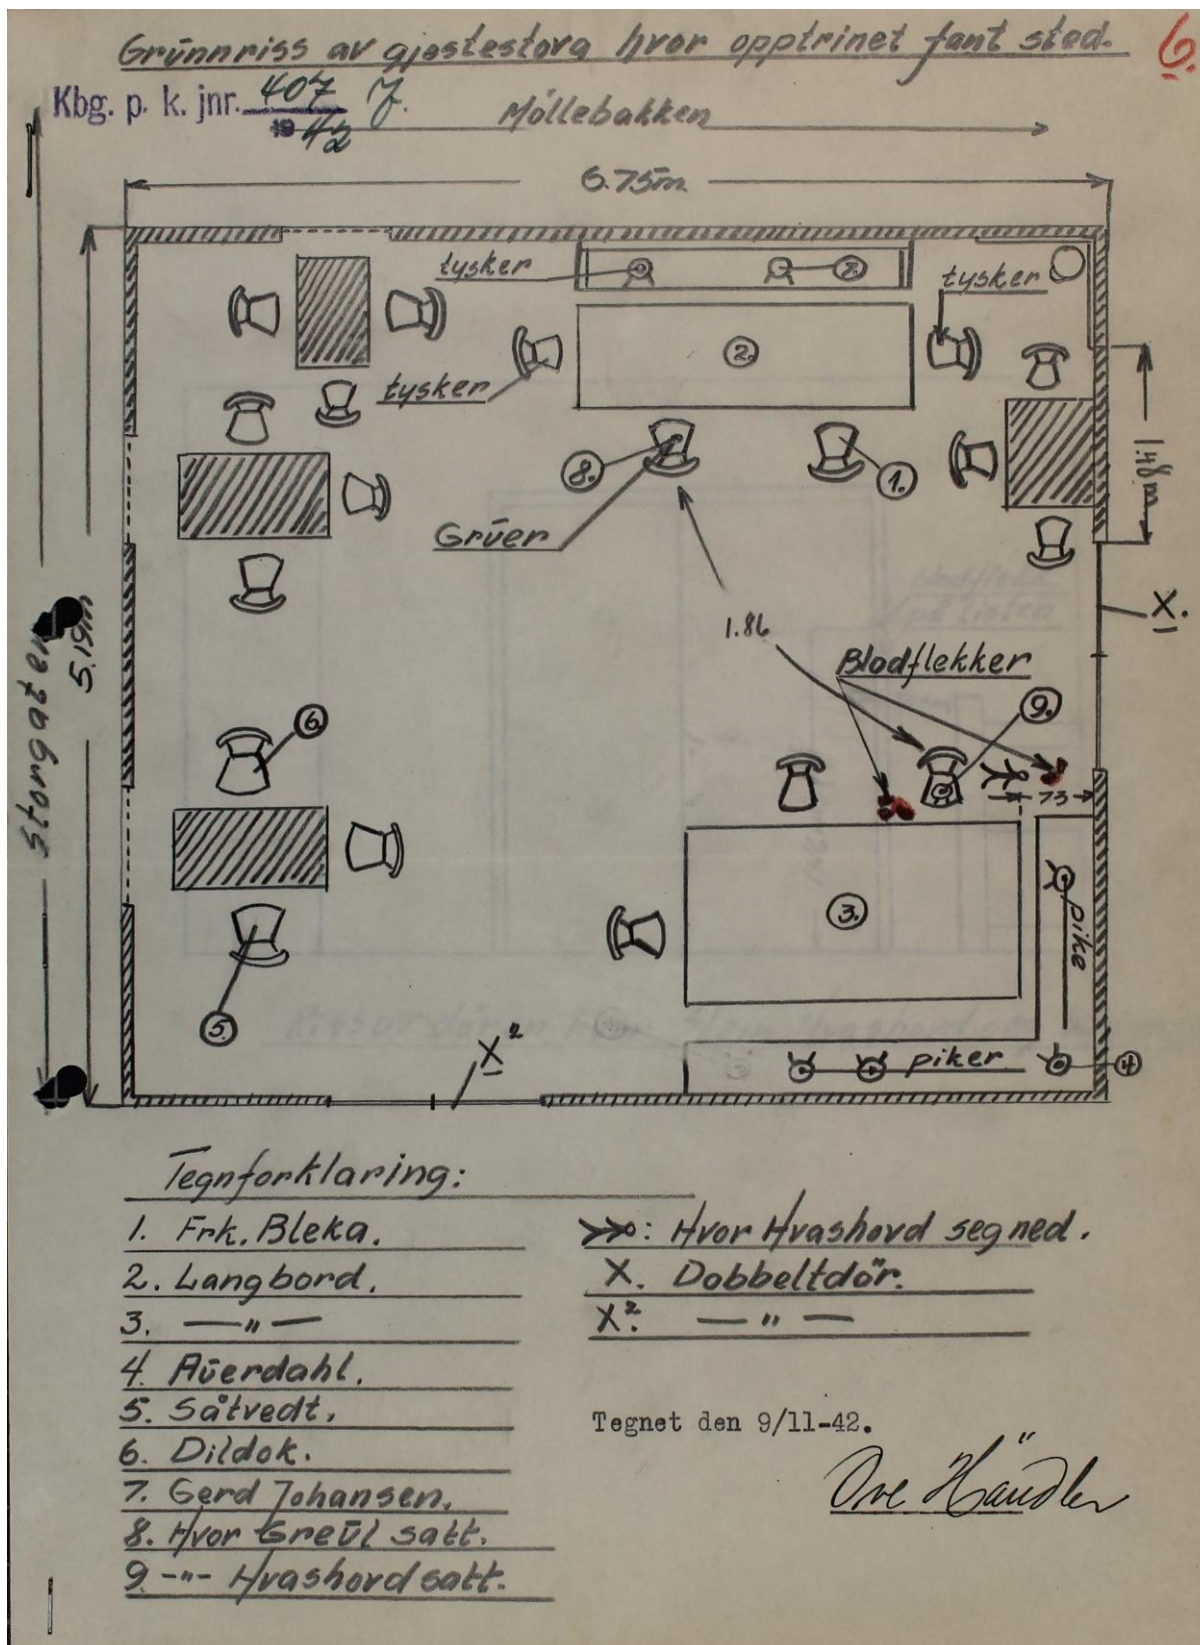 Grŭnnriss av gjestestova hvor opptrinet fant sted.
6.
Kbg. p. k. jnr. 407
19 42
Möllebakken
6.75m
tysker
7.
tysker
2.
tysker
8.
1.
Grŭer
1.48m
Storgaten
5.19m
1.86
X.
Blodflekker
9.
6.
73
3.
pike
5.
X²
piker
4
Tegnforklaring:
1. Frk. Bleka.
2. Langbord.
3. —„—
4. Aŭerdahl.
5. Såtvedt.
6. Dildok.
7. Gerd Johansen.
8. Hvor Greŭl satt.
9 -„- Hvashovd satt.
: Hvor Hvashovd segned.
X. Dobbeltdör.
X². —„—
Tegnet den 9/11-42.
Ove Händler